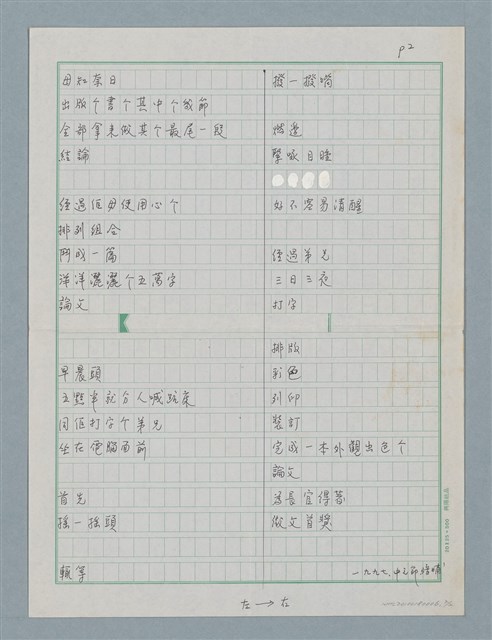 p2
毋知奈日
出版个書个其中个幾節
全部拿來做其个最尾一段
結論
經過佢毋使用心个
排列組合
鬥成一篇
洋洋灑灑个五萬字
論文
早晨頭
五點半就分人喊䟘床
同佢打字个弟兄
坐在電腦面前
首先
搖一搖頭
輒等
撥一撥嘴
燃邊
擎啄目睡
好不容易清醒
經過弟兄
三日三夜
打字
排版
彩色
列印
裝訂
完成一本外觀出色个
論文
為長官得著
做文首獎
一九九七、中元節
左→右